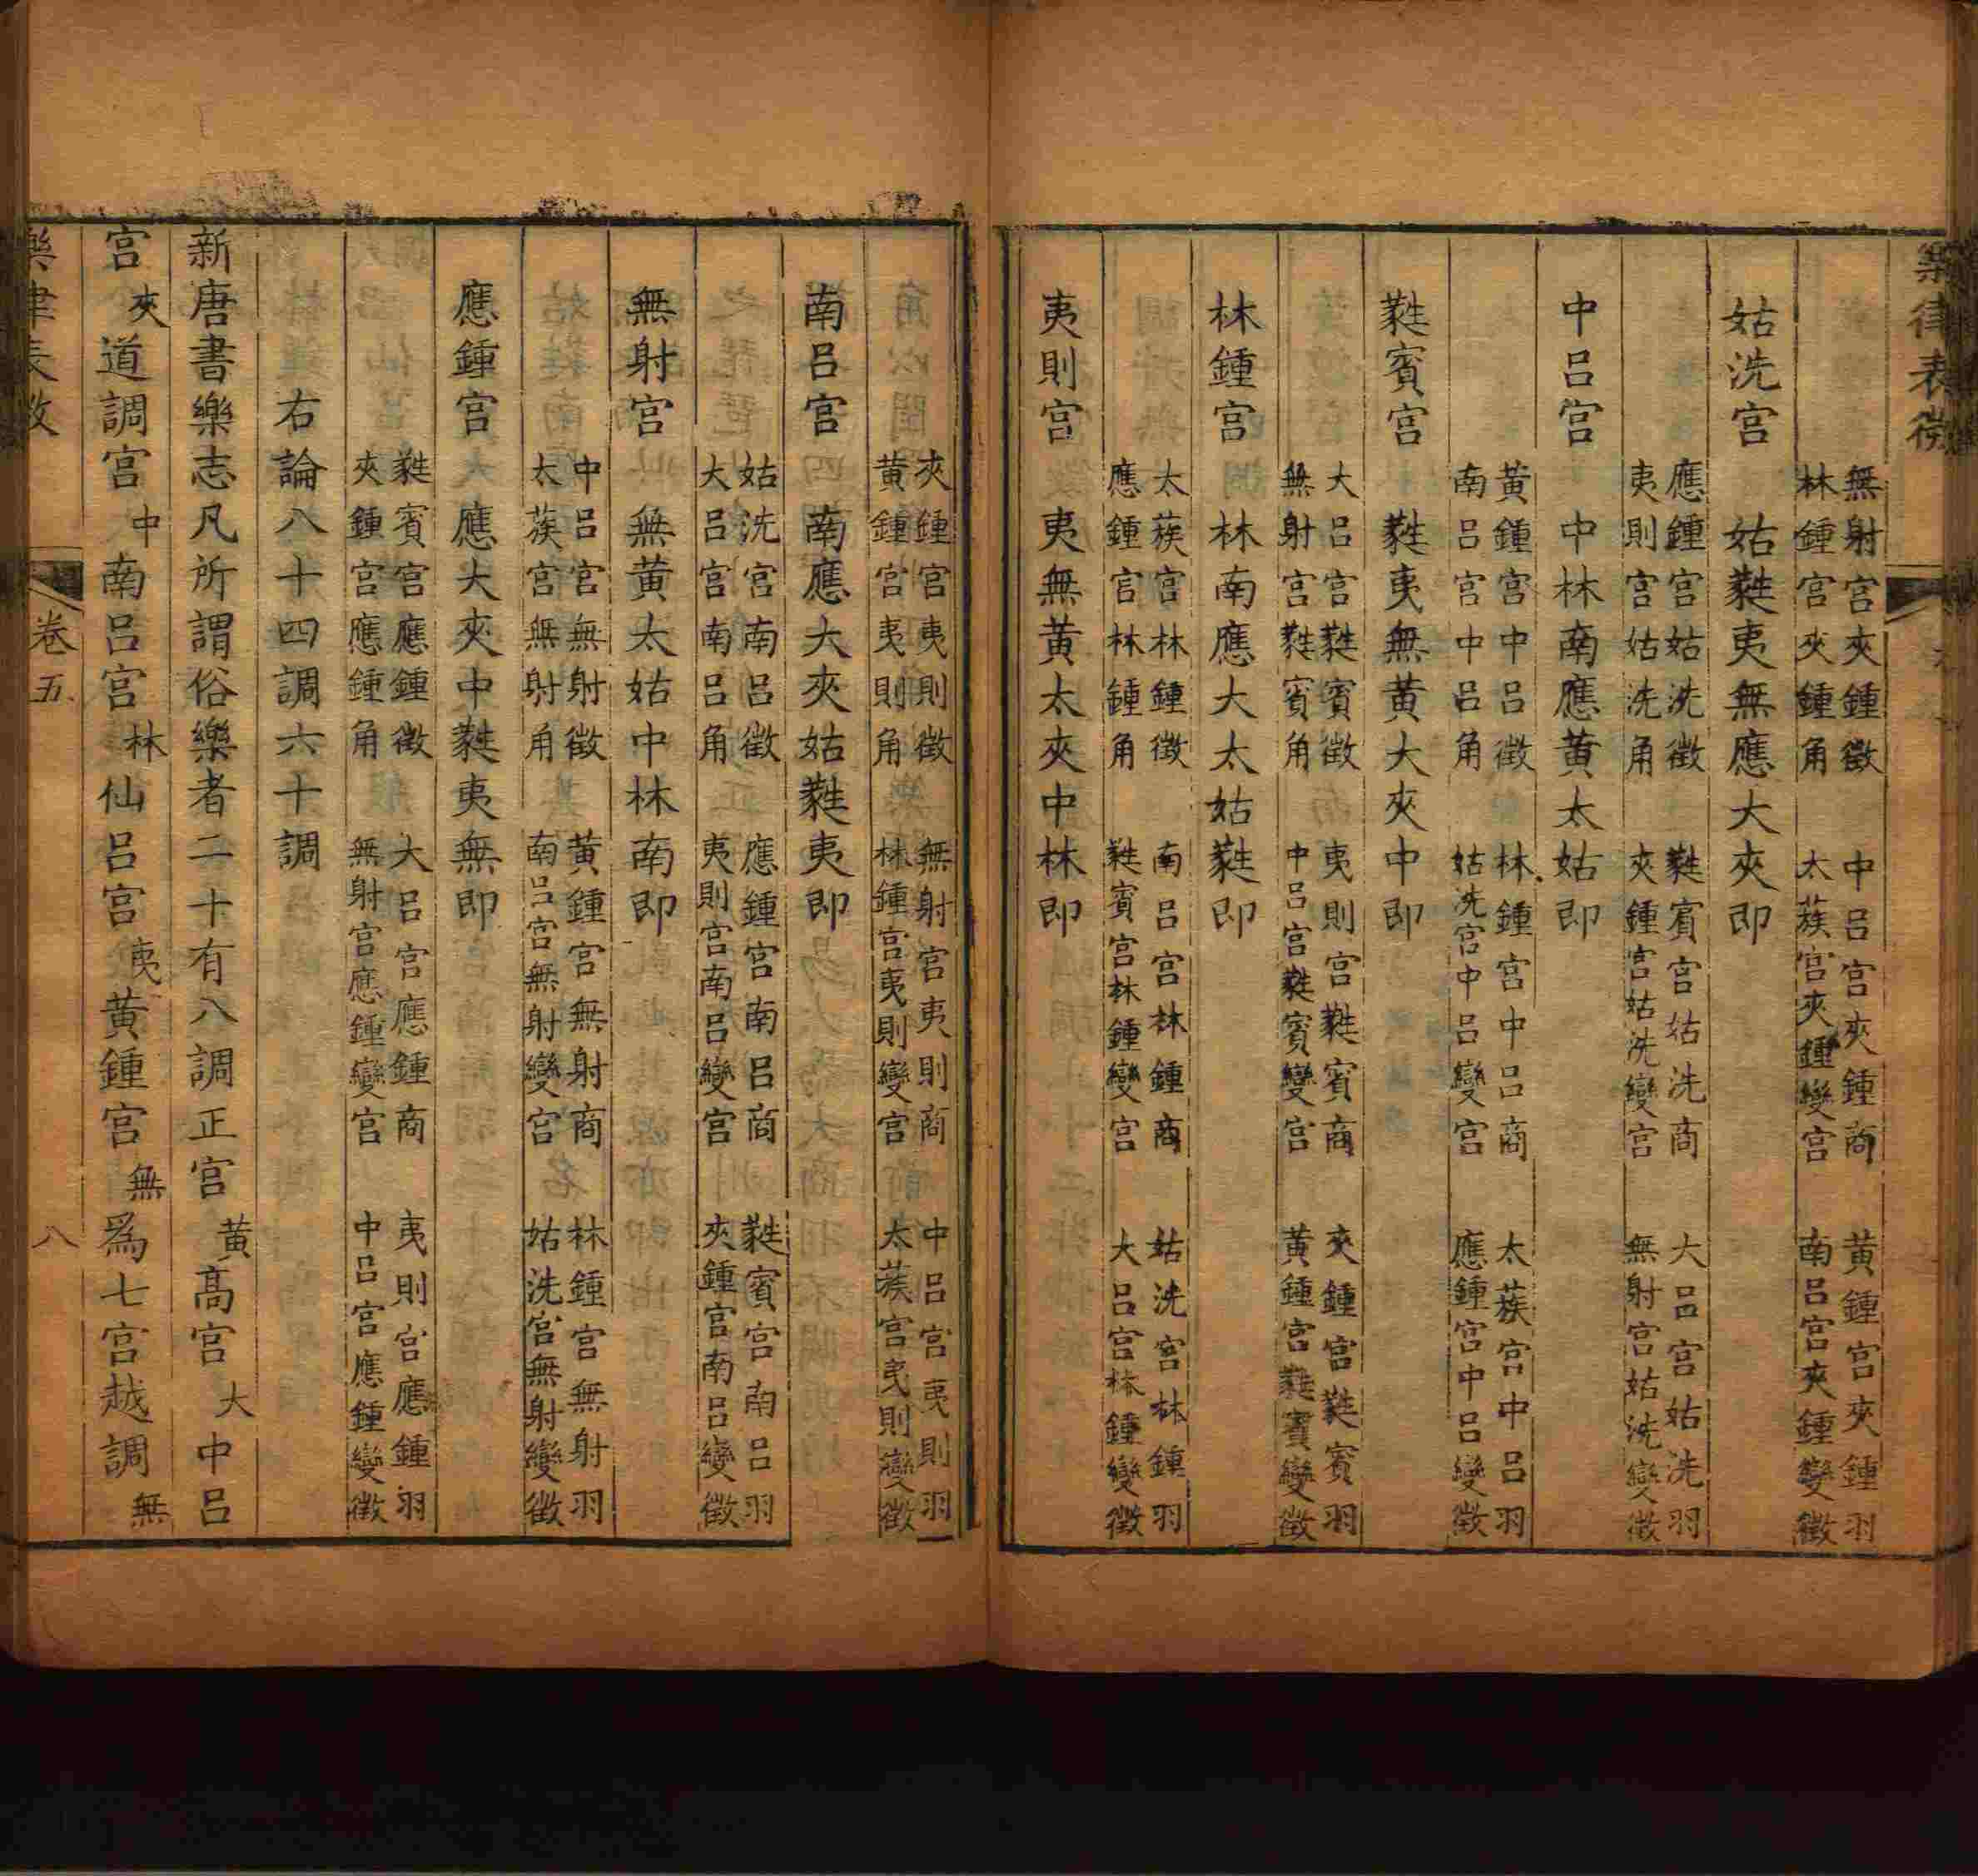 樂律表微
無射宮夾鍾徵　中呂宮夾鍾商　黃鍾宮夾鍾羽
林鍾宮夾鍾角　太蔟宮夾鍾變宮　南呂宮夾鍾變徵
姑洗宮　姑蕤夷無應大夾即
應鍾宮姑洗徵　蕤賓宮姑洗商　大呂宮姑洗羽
夷則宮姑洗角　夾鍾宮姑洗變宮　無射宮姑洗變徵
中呂宮　中林南應黃太姑即
黃鍾宮中呂徵　林鍾宮中呂商　太蔟宮中呂羽
南呂宮中呂角　姑洗宮中呂變宮　應鍾宮中呂變徵
蕤賓宮　蕤夷無黃大夾中即
大呂宮蕤賓徵　夷則宮蕤賓商　夾鍾宮蕤賓羽
無射宮蕤賓角　中呂宮蕤賓變宮　黃鍾宮蕤賓變徵
林鍾宮　林南應大太姑蕤即
太蔟宮林鍾徵　南呂宮林鍾商　姑洗宮林鍾羽
應鍾宮林鍾角　蕤賓宮林鍾變宮　大呂宮林鍾變徵
夷則宮　夷無黃太夾中林即
夾鍾宮夷則徵　無射宮夷則商　中呂宮夷則羽
黃鍾宮夷則角　林鍾宮夷則變宮　太蔟宮夷則變徵
南呂宮　南應大夾姑蕤夷即
姑洗宮南呂徵　應鍾宮南呂商　蕤賓宮南呂羽
大呂宮南呂角　夷則宮南呂變宮　夾鍾宮南呂變徵
無射宮　無黃太姑中林南即
中呂宮無射徵　黃鍾宮無射商　林鍾宮無射羽
太蔟宮無射角　南呂宮無射變宮　姑洗宮無射變徵
應鍾宮　應大夾中蕤夷無即
蕤賓宮應鍾徵　大呂宮應鍾商　夷則宮應鍾羽
夾鍾宮應鍾角　無射宮應鍾變宮　中呂宮應鍾變徵
右論八十四調六十調
新唐書樂志凡所謂俗樂者二十有八調正宮黃高宮大中呂
宮夾道調宮中南呂宮林仙呂宮夷黃鍾宮無爲七宮越調無
樂律表微　卷五　八